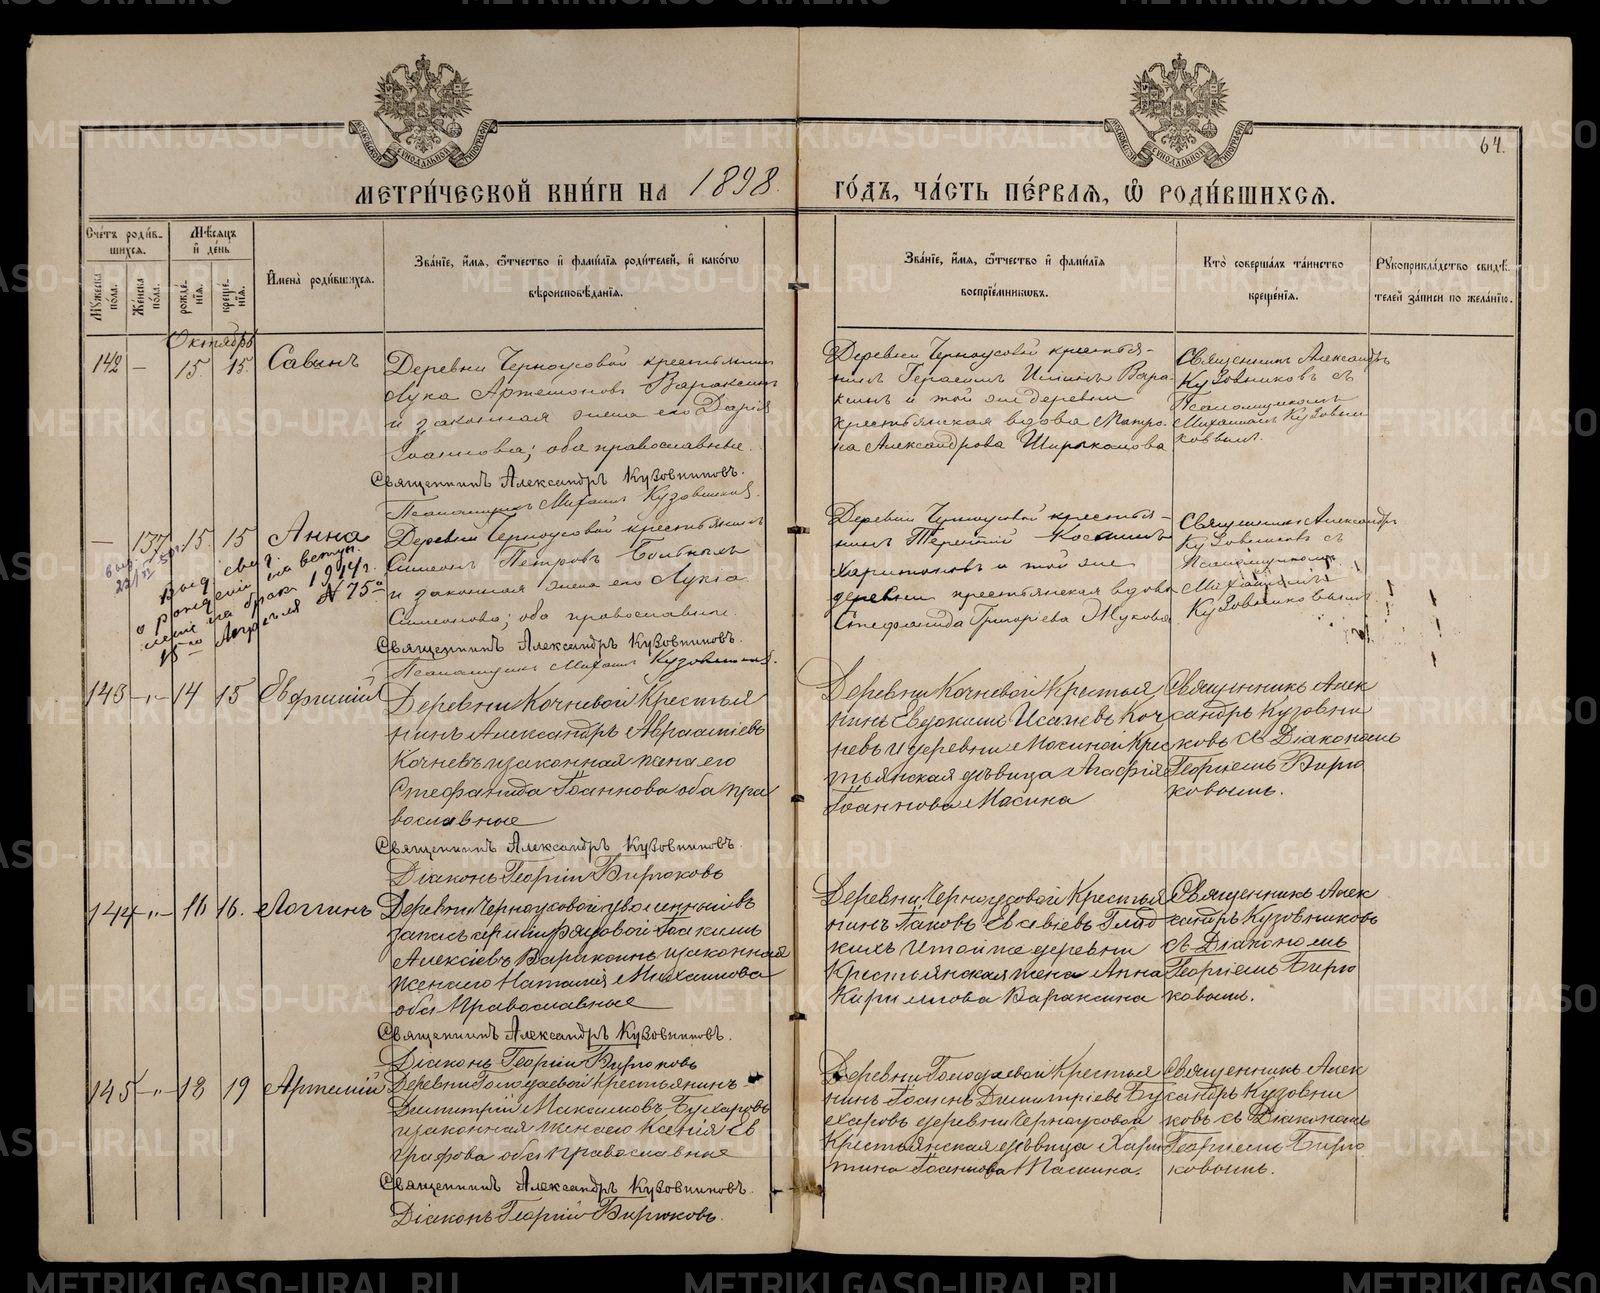 64.
МЕТРИ́ЧЕСКОЙ КНИ́ГИ НА 1898 ГО́ДЪ, ЧА́СТЬ ПЕ́РВАЯ, Ѡ РОДИ́ВШИХСЯ.
Сче́тъ роди́в-
шихся.
Му́жеска по́ла.
Же́нска по́ла.
Мѣ́сяцъ и де́нь
рожде́-
нїя.
креще́-
нїя.
Имена̀ роди́вшихся.
Зва́нїе, и́мя, ѻ́тчество и фами́лїя роди́телей, и како́гѡ
вѣроисповѣ́данїя.
Зва́нїе, и́мя, ѻ́тчество и фами́лїя
воспрїе́мниковъ.
Кто̀ соверша́лъ та́инство
креще́нїя.
Рꙋкоприкла́дство свидѣ́-
телей за́писи по жела́нїю.
Октябрь
142 — 15. 15. Савинъ
Деревни Черноусовой крестьянинъ
Лука Артемоновъ Вараксинъ
и законная жена его Дарія
Іоаннова; оба православные.
Священникъ Александръ Кузовниковъ.
Псаломщикъ Михаилъ Кузовниковъ.
Деревни Черноусовой крестья-
нинъ Герасимъ Вара-
ксинъ и той же деревни
крестьянская вдова Матро-
на Александрова Ширыкалова
Священникъ Александръ
Кузовниковъ съ
Псаломщикомъ
Михаиломъ Кузовни
ковымъ.
— 137 15 15 Анна
Выд. свид.
о рожденіи на вступ.
леніе на бракъ 1914 г.
15-го Апрѣля № 75-й
Деревни Черноусовой крестьянинъ
Симеонъ Петровъ
и законная жена его Лукія
Симеонова; оба православные.
Священникъ Александръ Кузовниковъ.
Псаломщикъ Михаилъ Кузовниковъ.
Деревни Черноусовой крестья-
нинъ Терентій Косминъ
Харитоновъ и той же
деревни крестьянская вдова
Стефанида Григоріева Жукова
Священникъ Александръ
Кузовниковъ съ
Псаломщикомъ
Михаиломъ
Кузовниковымъ.
143 —„— 14 15 Евфимій
Деревни Кочневой Крестья
нинъ Александръ Авраамiевъ
Кочневъ и законная жена его
Стефанида Іоаннова оба пра
вославные
Священникъ Александръ Кузовниковъ.
Діаконъ Георгій Бирюковъ
Деревни Кочневой Крестья
нинъ Евдокимъ Исаіевъ Коч
невъ и деревни Мосиной Крес
тьянская дѣвица Агафія
Іоаннова Масина
Священникъ Алек
сандръ Кузовни
ковъ съ Діакономъ
Георгіемъ Бирю
ковымъ.
144 —„— 16 16. Логгинъ
Деревни Черноусовой уволенный въ
запасъ арміи рядовой Іоакимъ
Алексіевъ Вараксинъ и законная
жена его Наталія Михаилова
оба Православные
Священникъ Александръ Кузовниковъ.
Діаконъ Георгій Бирюковъ
Деревни Черноусовой Крестья
нинъ Іаковъ Евсевіевъ Глад
кихъ и той же деревни
Крестьянская жена Анна
Кириллова Вараксина
Священникъ Алек
сандръ Кузовниковъ
съ Діакономъ
Георгіемъ Бирю
ковымъ.
145 —„— 18 19 Артемій
Деревни Голодаевой Крестьянинъ
Димитрій Максимовъ Бухаровъ
и законная жена его Ксенія Ев
графова оба православные
Священникъ Александръ Кузовниковъ.
Діаконъ Георгій Бирюковъ.
Деревни Голодаевой Крестья
нинъ Іоаннъ Димитріевъ Бу
харовъ и деревни Черноусовой
Крестьянская дѣвица Хари
тина Іоаннова
Священникъ Алек
сандръ Кузовни
ковъ съ Діакономъ
Георгіемъ Бирю
ковымъ.
METRIKI.GASO-URAL.RU